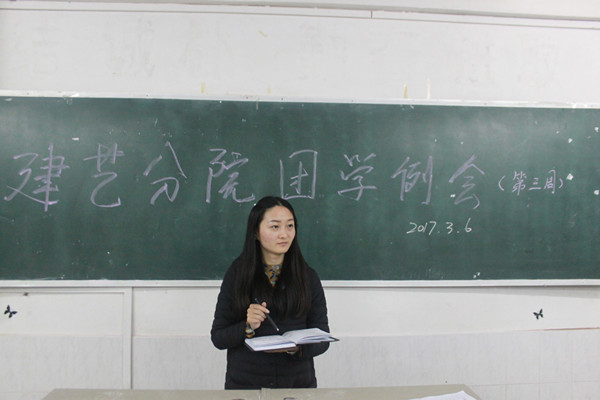 建艺分院团学例会(第三周)
2017.3.6